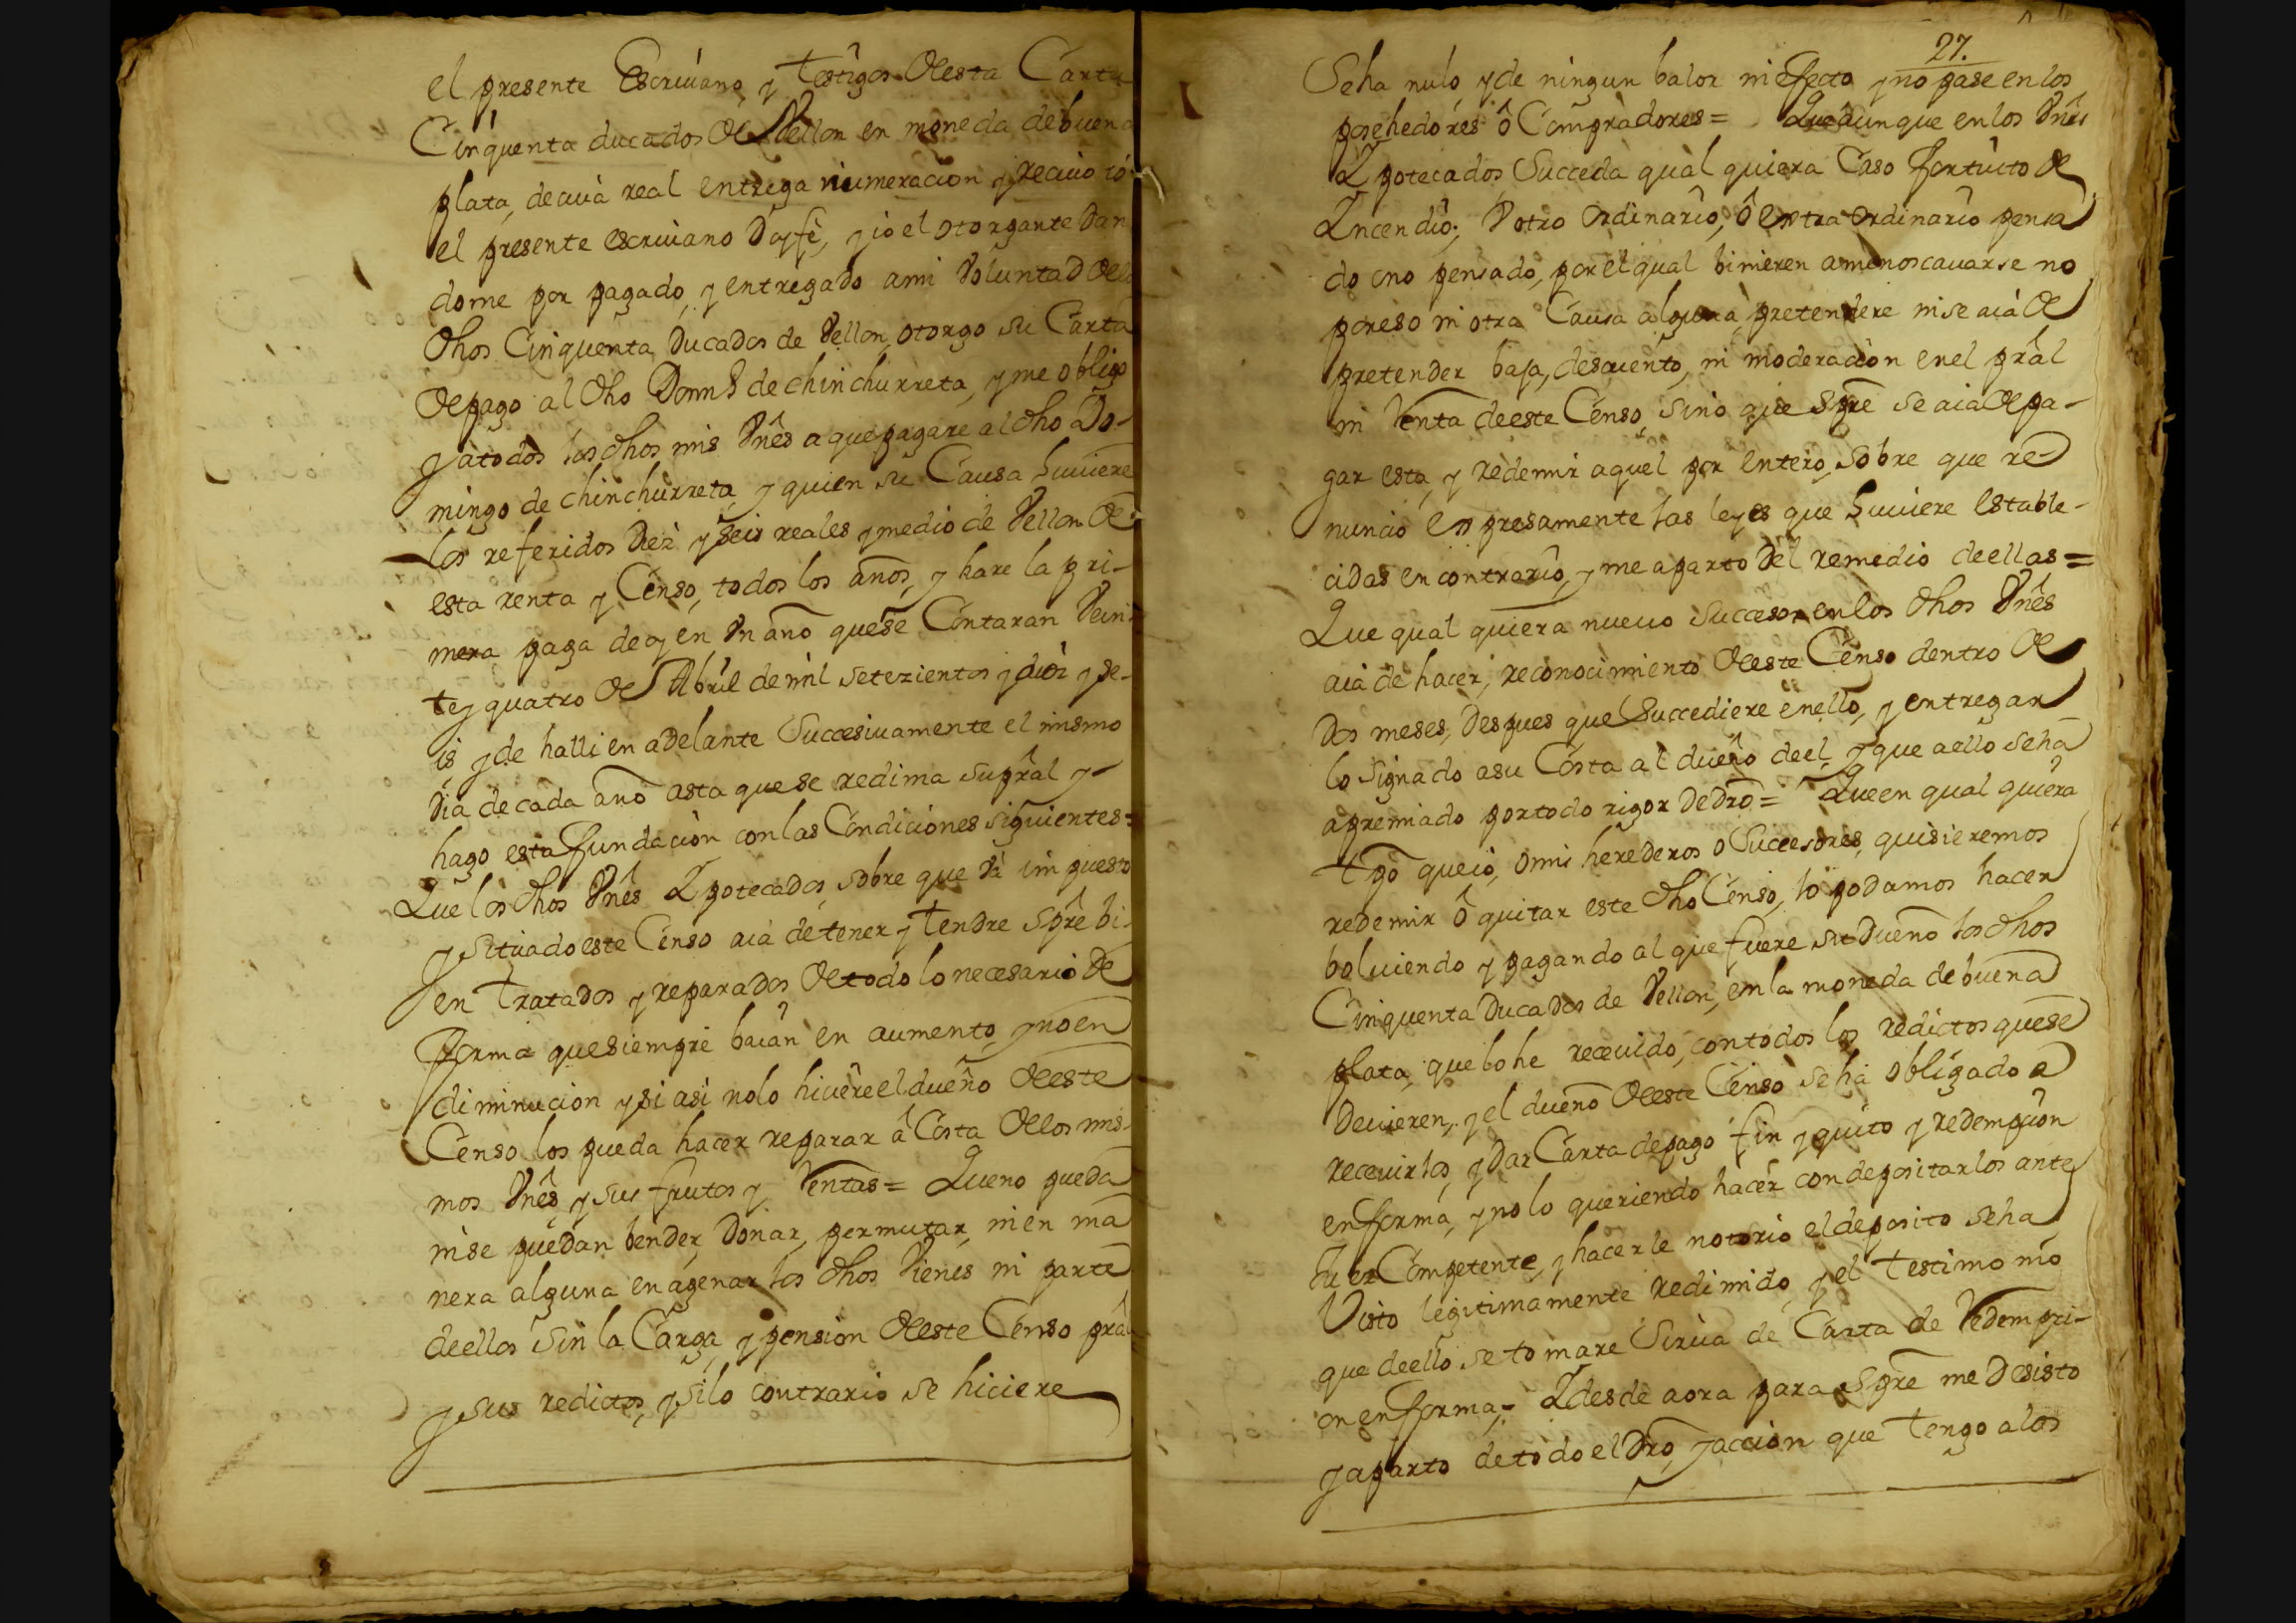 el presente Escriuano, y Testigos desta Carta
Cinquenta ducados de Vellon en moneda de buena
plata, de cuia real entrega numeracion y reciuo io
el presente escriuano Doy fè, y io el otorgante Dan
dome por pagado, y entregado a mi Voluntad de los
dhos Cinquenta Ducados de Vellon, otorgo su Carta
de pago al dho Domingo de chinchurreta, y me obligo
y à todos los dhos mis Vnês a que pagare al dho Do-
mingo de chinchurreta, y quien su Causa huuiere
los referidos Diez y seis reales y medio de Vellon de
esta renta y Censo, todos los años, y hare la pri-
mera paga de oy en Vn año que se Contaran Vein-
te y quatro de Abril de mil setezientos y diez y se-
is y de halli en adelante Succesiuamente el mismo
Dia de cada año asta que se redima su prâl y
hago esta fundacion con las Condiciones siguientes=
Que los dhos Vnês Ypotecados, sobre que Và impuesto
y situado este Censo aia de tener y Tendre spre bi-
en Tratados y reparados de todo lo necesario de
forma que siempre baian en aumento, y no en
diminucion y si asi no lo hiciere el dueño de este
Censo los pueda hacer reparar â Costa de los mis-
mos Vnês y sus frutos y Rentas= Que no pueda
ni se puedan bender, Donar, permutar, ni en ma
nera alguna enagenar los dhos Vienes ni parte
de ellos sin la Carga, y pension de este Censo prâl
y sus redictos, y si lo contrario se hiciere
27.
Seha nulo, y de ningun balor ni efecto y no pase en los
posehedores ô Compradores= Que aunque en los Vnês
Ypotecados, Succeda qual quiera Caso fortuito de
Yncendio, V otro Ordinario, ô extra Ordinario pensa
do o no pensado, por el qual binieren a menoscauarse no
por eso ni otra Causa alguna, pretendere ni se aia de
pretender baja, descuento, ni moderacion en el prâl
ni Renta de este Censo, sino que spre se aia de pa-
gar esta, y redemir aquel por entero, sobre que re-
nuncio expresamente las leyes que huuiere estable-
cidas en contrario, y me aparto del remedio de ellas=
Que qual quiera nueuo succesor en los dhos Vnês
aia de hacer, reconocimiento de este Censo dentro de
Dos meses, Despues que Succediere en ello, y entregar
lo signado a su Costa al dueño de el, y que a ello seha
apremiado por todo rigor de Dro= Que en qual quiera
tpo que io, o mi herederos o succesores, quisieremos
redemir ô quitar este dho Censo, lo podamos hacer
bolviendo y pagando al que fuere su Dueño los dhos
Cinquenta Ducados de Vellon, en la moneda de buena
plata, que lo he receuido, con todos los redictos que se
Deuieren, y el dueño de este Censo seha obligado a
receuirlos, y Dar Carta de pago fin y quito y redempcion
en forma, y no lo queriendo hacer con depositarlos ante
Juez Competente, y hacerle notorio el deposito seha
Visto legitimamente redimido, y el Testimonio
que de ello se tomare sirua de Carta de Redempci-
on en forma; Y desde aora para spre me Desisto
y aparto de todo el Dro, y accion que Tengo a los